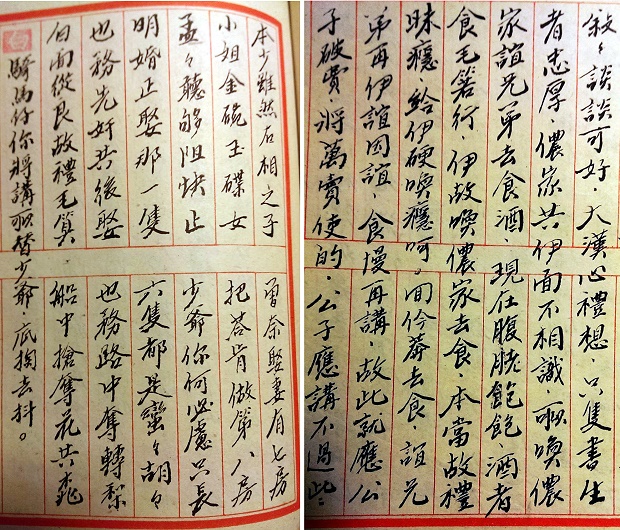 敘々談談可好。大漢心禮想 只隻書生
者志厚。儂家共伊面不相識 喚儂
家誼兄弟去食酒。現任腹胱飽飽酒者
食毛箸行。伊故喚儂家去食 本當故禮
昧癮 給伊硬喚癮呵。囬伱莽去食 誼兄
弟再伊誼同誼。食慢再講。故此就應公
子破費。將萬賣使的。公子應講不過此々
本少雖然右相之子 曾奈娶妻有七房
小姐金硯玉碟女 把荅肯做第八房
孟々聽够阻快止 少爺你何必慮只長
明婚正娶那一隻 六隻都是蠻々胡々
也務先奸共後娶 也務路中奪轉梨
白面從良故禮毛算 船中搶奪花共
騎馬仔你將講替少爺。底掏去抖。